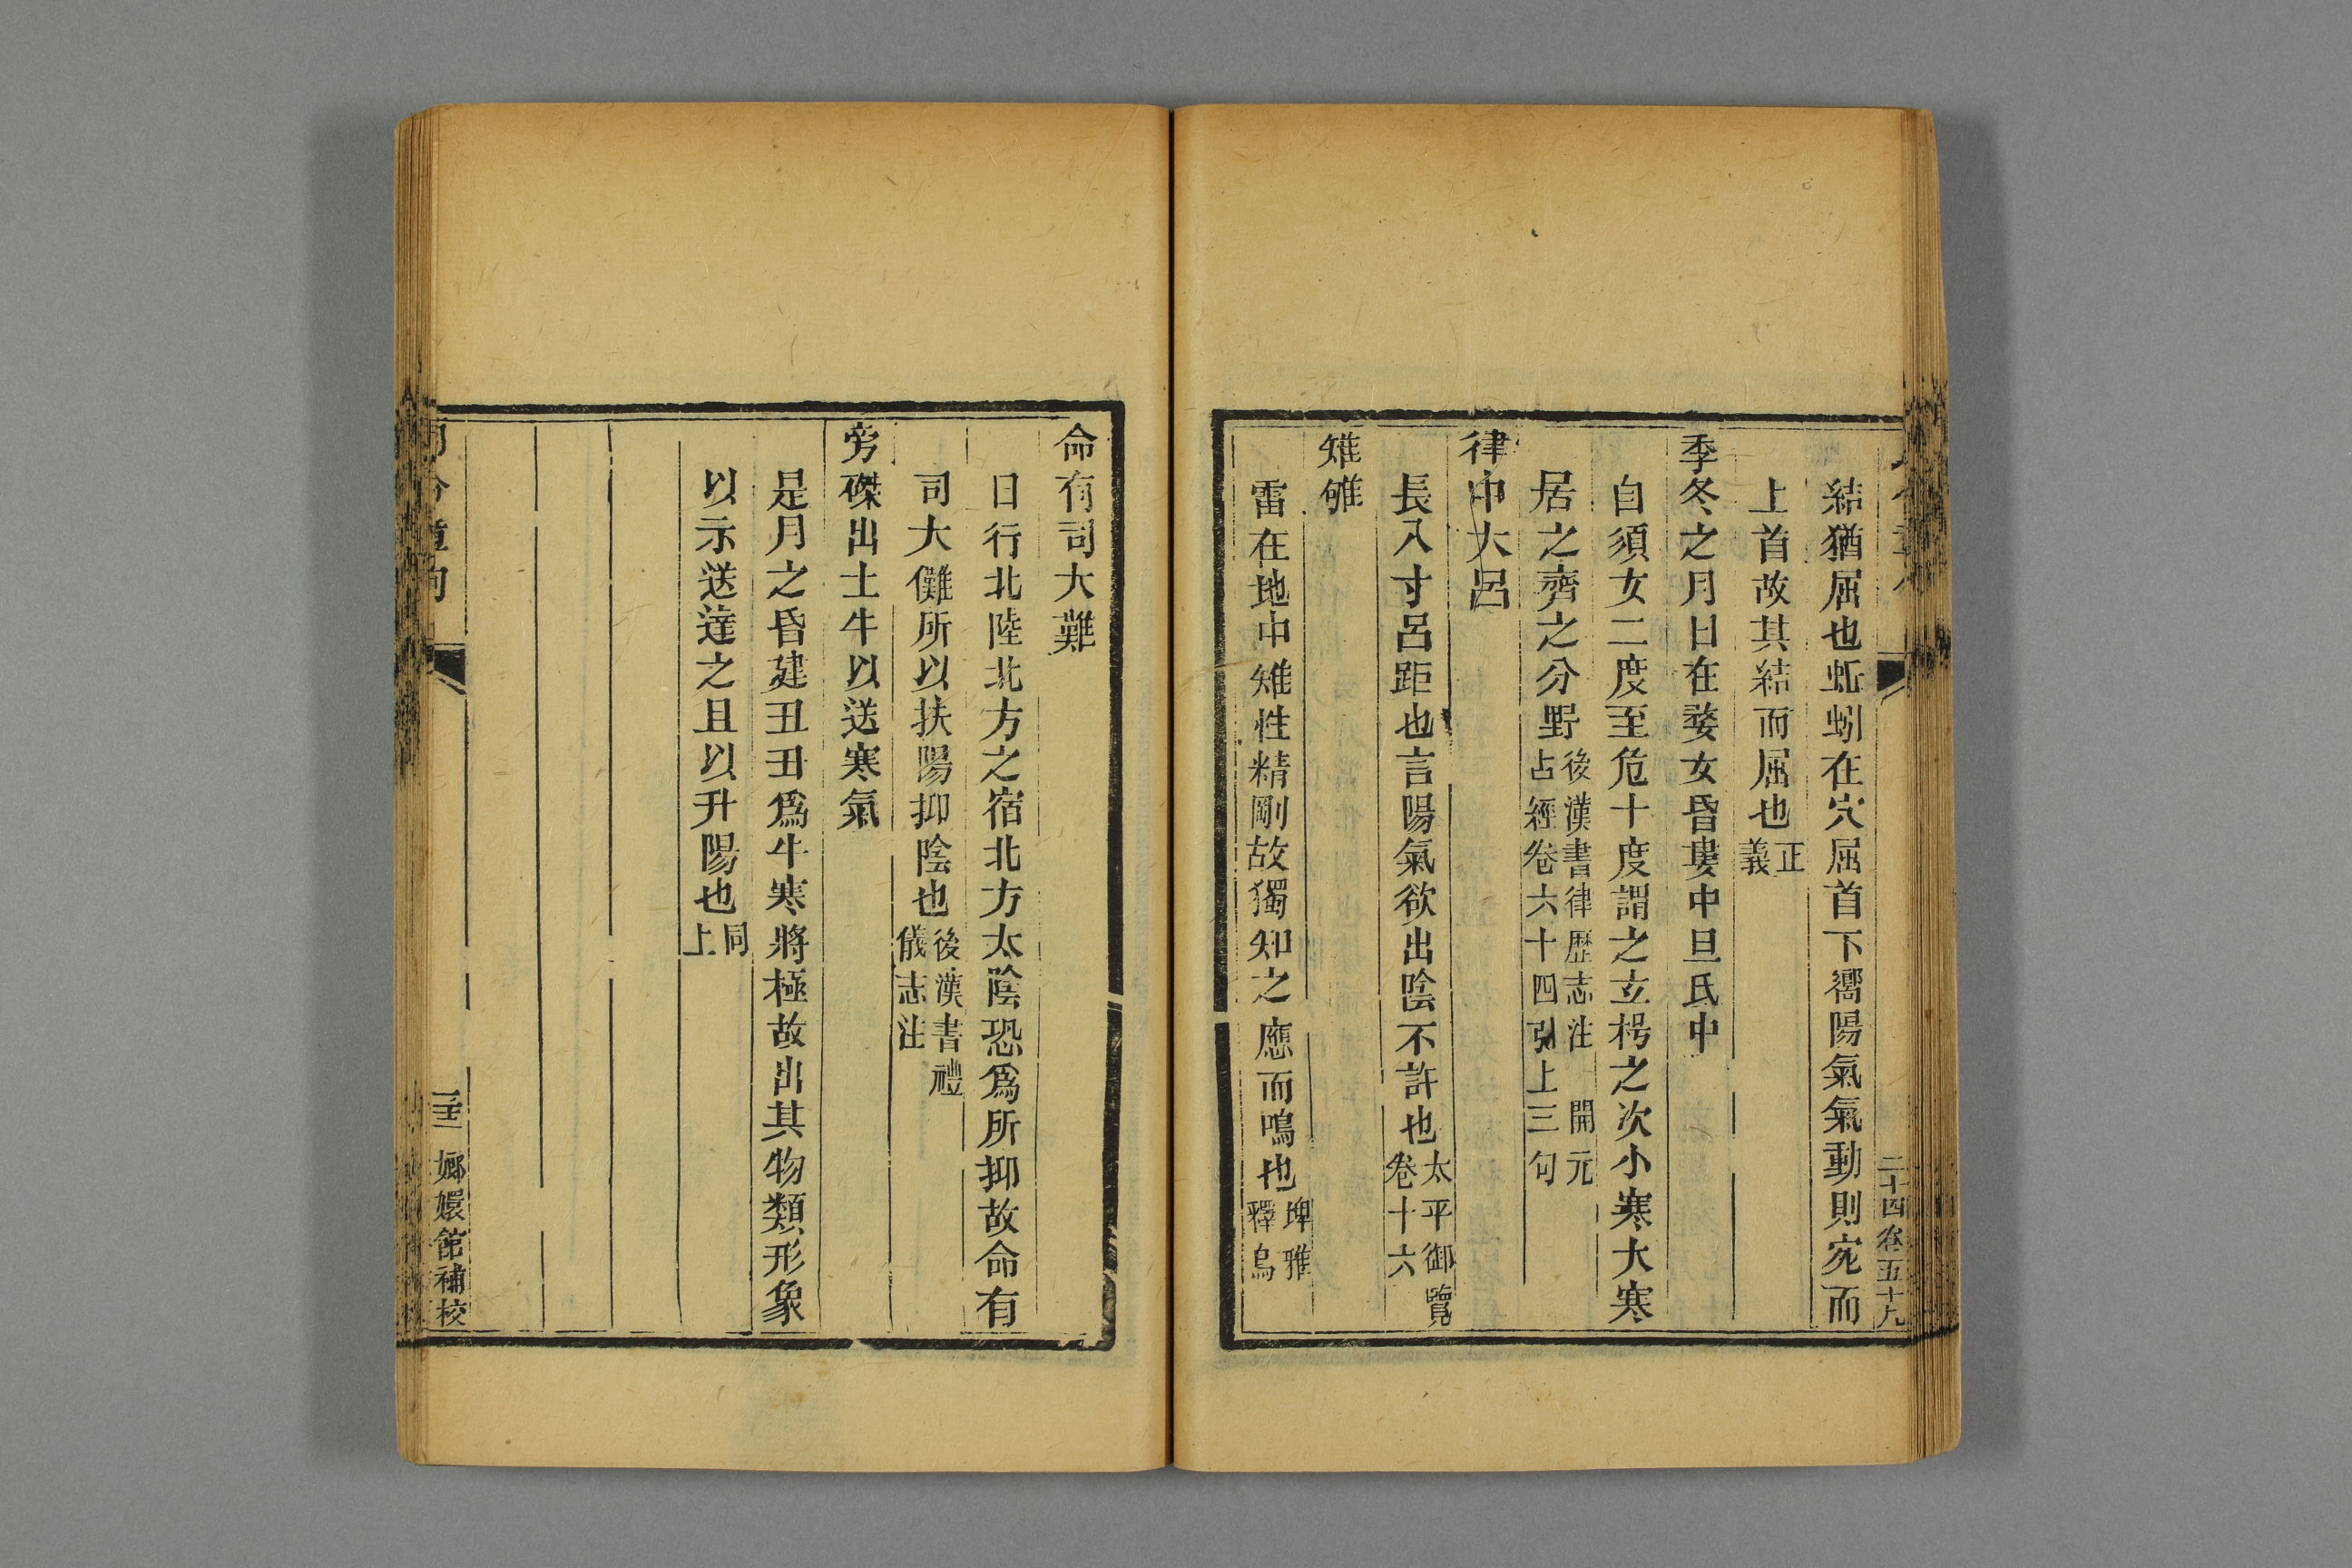 結猶屈也蚯蚓在穴屈首下嚮陽氣氣動則宛而
上首故其結而屈也正義
季冬之月日在婺女昏婁中旦氐中
自須女二度至危十度謂之玄枵之次小寒大寒
居之齊之分野後漢書律歷志注 開元占經卷六十四引上三句
律中大呂
長八寸呂距也言陽氣欲出陰不許也太平御覽卷十六
雉雊
雷在地中雉性精剛故獨知之應而鳴也埤雅釋鳥
二十四卷五十九
命有司大難
日行北陸北方之宿北方太陰恐爲所抑故命有
司大儺所以扶陽抑陰也後漢書禮儀志注
旁磔出土牛以送寒氣
是月之昏建丑丑爲牛寒將極故出其物類形象
以示送達之且以升陽也同上
月令章句
嫏嬛館補校